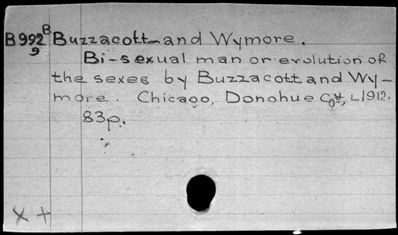 B992 B Buzzacott and Wymore.
9
Bi-sexual man or evolution of
the sexes by Buzzacott and Wy-
more. Chicago, Donohue Coy, c1912.
83p.
x +